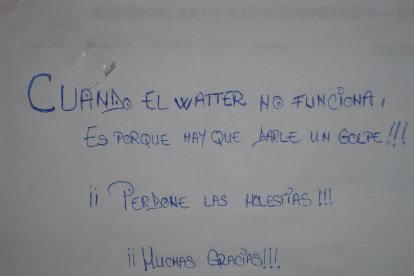 CUANDO EL WATTER NO FUNCIONA,
ES PORQUE HAY QUE DARLE UN GOLPE!!!
¡¡ PERDONE LAS MOLESTIAS!!!
¡¡ MUCHAS GRACIAS!!!